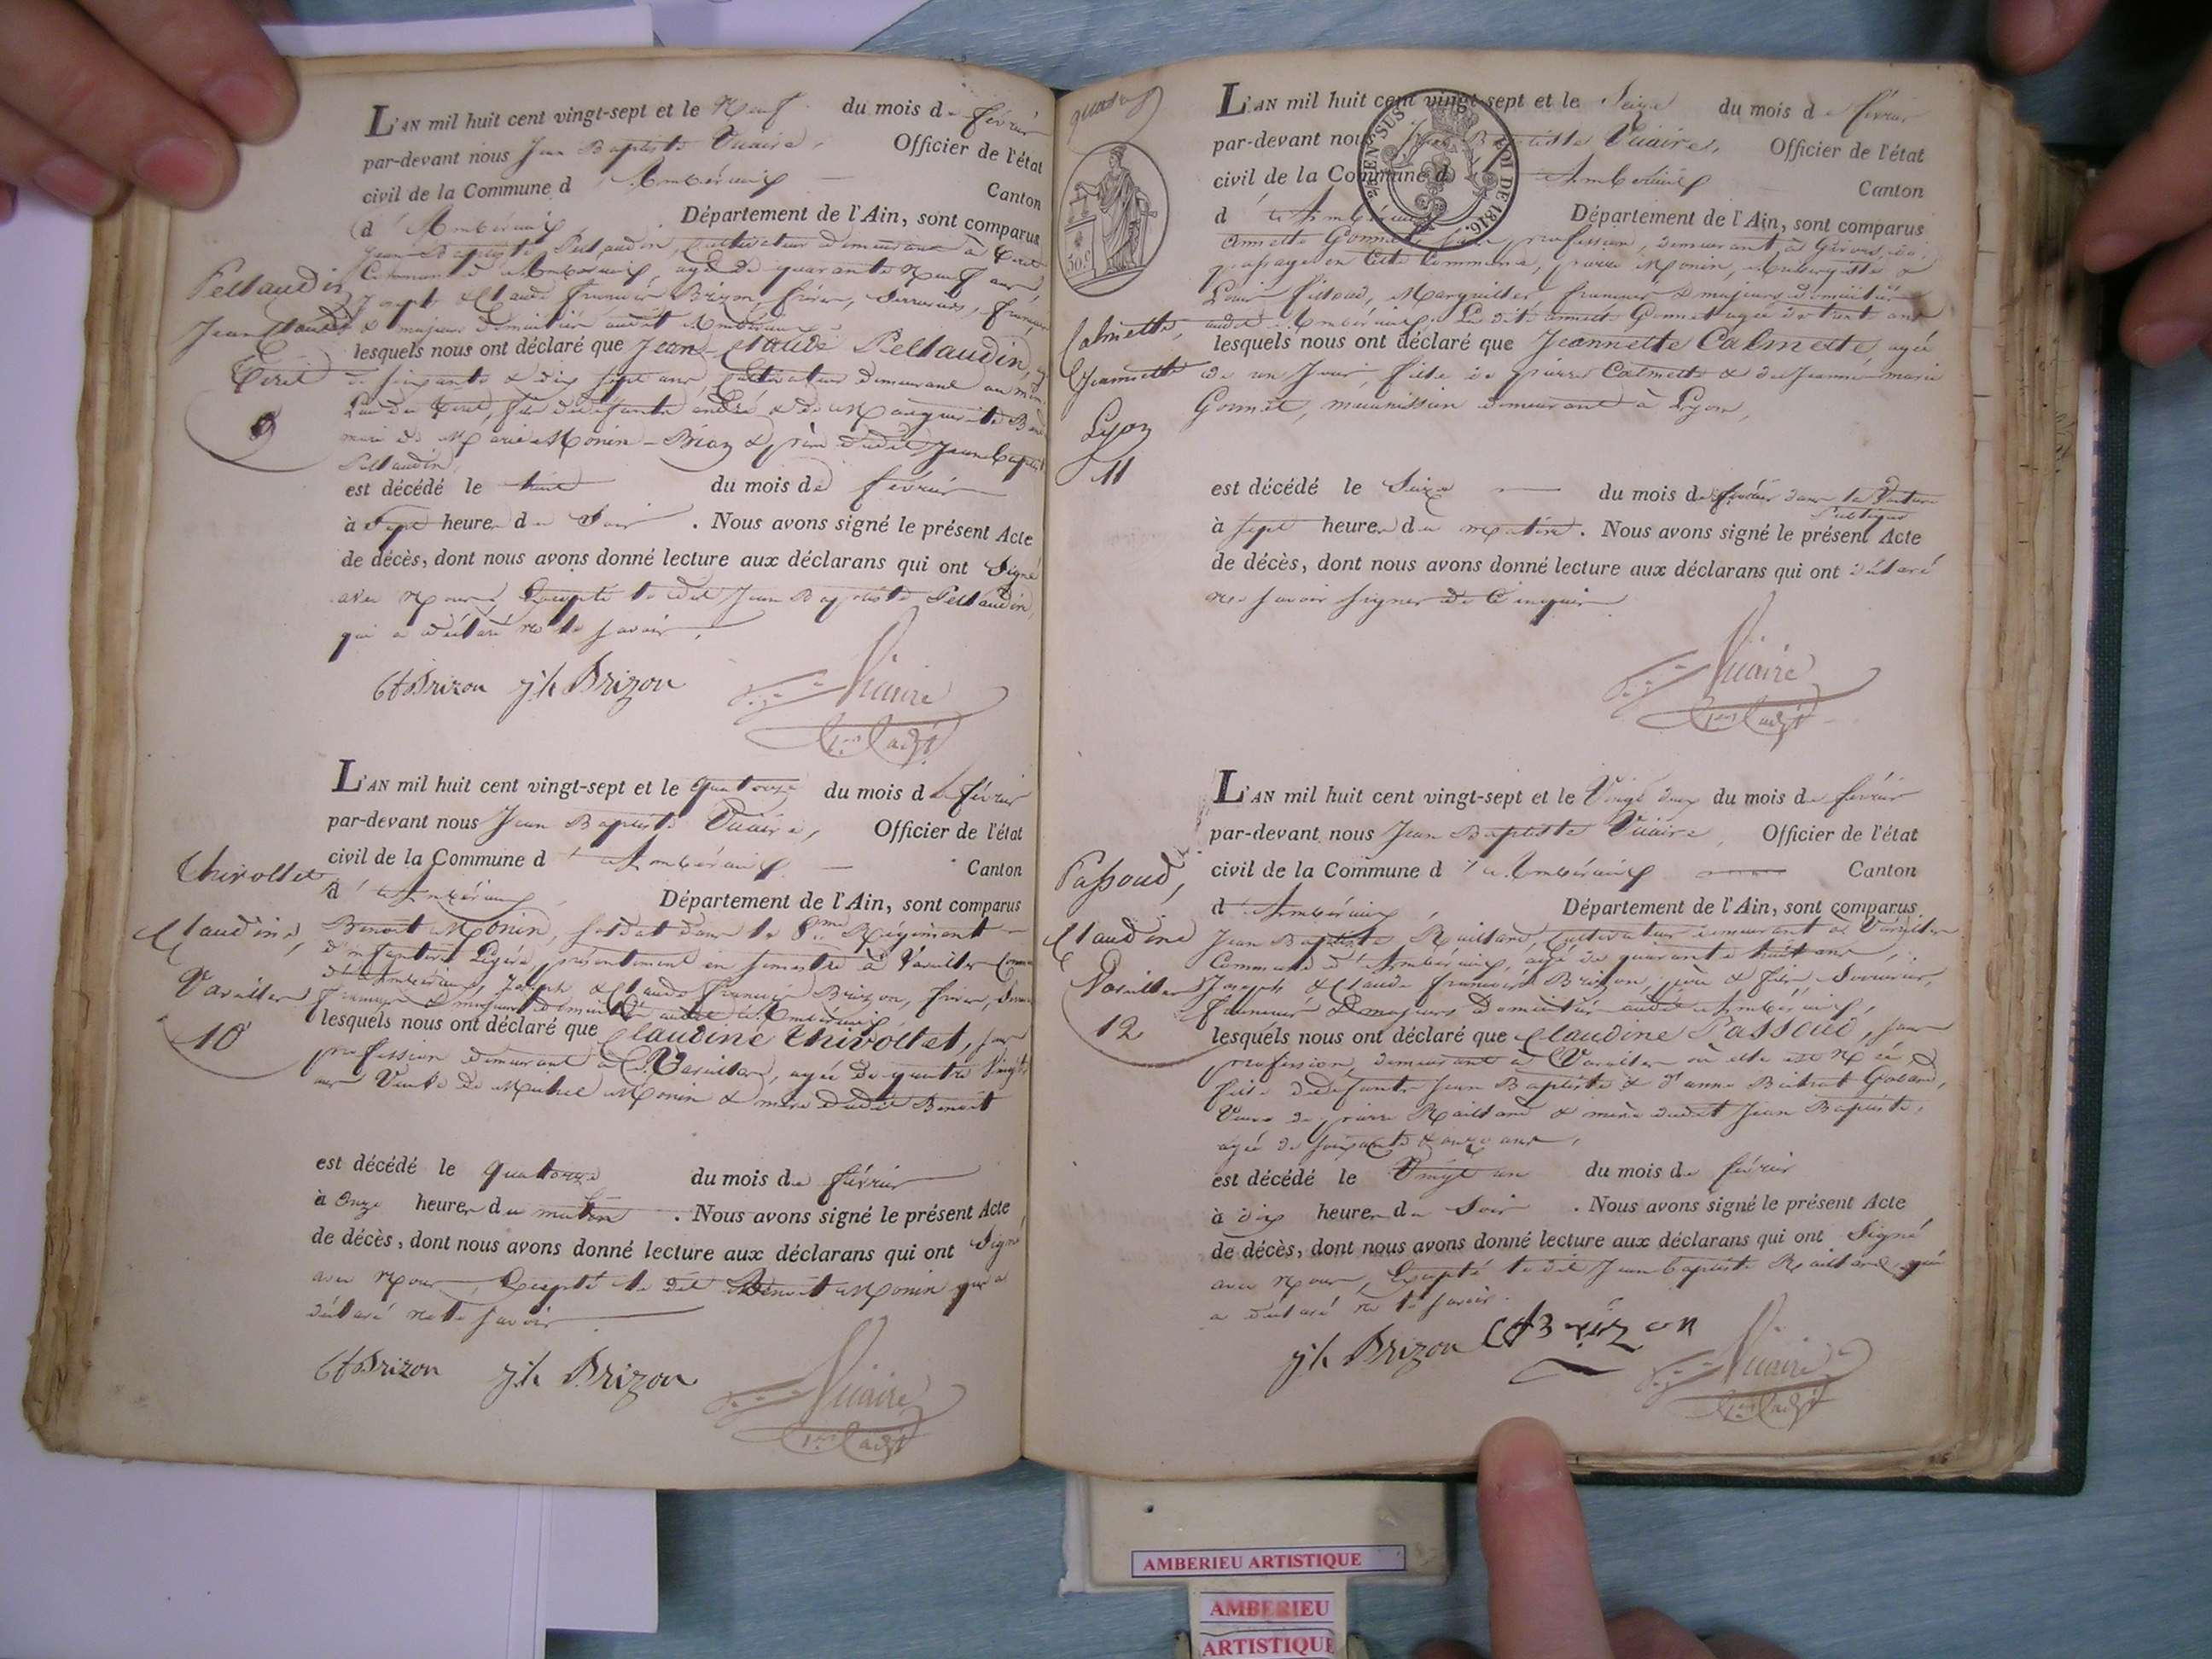 L'AN mil huit cent vingt-sept et le Neuf du mois de février
par-devant nous Jean Baptiste Vicaire, Officier de l'état
civil de la Commune d'Ambérieux Canton
d'Ambérieux Département de l'Ain, sont comparus
Jean-Baptiste Peltaudin, cultivateur demeurant à Tiret
Commune d'Ambérieux, agé de quarante Neuf ans,
Joseph & Claude François Brizon, frères, Serruriers, françois
& majeurs domiciliés audit Ambérieux
Peltaudin
Jean Claude
Tiret
9
lesquels nous ont déclaré que Jean-Claude Peltaudin,
de soixante & dix sept ans, cultivateur demeurant au même
Lieu de Tiret, fils de défunts andré & de Marguerite
mari de Marie Monin-Brian & père dudit Jean Baptiste
Peltaudin
est décédé le huit du mois de février
à Sept heures du Soir. Nous avons signé le présent Acte
de décès, dont nous avons donné lecture aux déclarans qui ont Signé
avec Nous, Excepté le dit Jean Baptiste Peltaudin,
qui a déclaré ne le savoir.
Cf Brizon jh Brizon Vicaire
L'AN mil huit cent vingt-sept et le quatorze du mois de février
par-devant nous Jean Baptiste Vicaire, Officier de l'état
civil de la Commune d'Ambérieux Canton
d'Ambérieux, Département de l'Ain, sont comparus
Benoit Monin, soldat dans le 8me Régiment
d'infanterie Légère, présentement en semestre à Vareilles Commune
d'Ambérieux, Joseph & Claude François Brizon, frères,
françois & majeurs domiciliés audit Ambérieux
Thivollet
Claudine,
Vareilles
10
lesquels nous ont déclaré que Claudine Thivollet, sans
profession demeurant à Vareilles, agée de quatre Vingts
ans Veuve de Michel Monin & mère dudit Benoit
est décédé le quatorze du mois de février
à Onze heures du matin. Nous avons signé le présent Acte
de décès, dont nous avons donné lecture aux déclarans qui ont Signé
avec Nous, Excepté le dit Benoit Monin qui a
déclaré ne le savoir
Cf Brizon jh Brizon Vicaire
L'AN mil huit cent vingt-sept et le Seize du mois de février
par-devant nous Jean Baptiste Vicaire, Officier de l'état
civil de la Commune d'Ambérieux Canton
d'Ambérieux Département de l'Ain, sont comparus
LOI DE 1816.
50 c
Annette Gonnet, sans profession, demeurant à Givors, de
passage en cette Commune, pierre Monin, Aubergiste &
Louis Marguillier, françois & majeurs domiciliés
audit Ambérieux. La dite annette Gonnet agée de trente ans
Calmette,
Jeannette
Lyon
11
lesquels nous ont déclaré que Jeannette Calmette, agée
de un Jour, fille de pierre Calmette & de Jeanne-marie
Gonnet, demeurant à Lyon,
est décédé le Seize du mois de février dans la Voiture
Publique
à sept heures du matin. Nous avons signé le présent Acte
de décès, dont nous avons donné lecture aux déclarans qui ont déclaré
ne savoir signer de ce enquis
Vicaire
L'AN mil huit cent vingt-sept et le Vingt deux du mois de février
par-devant nous Jean Baptiste Vicaire, Officier de l'état
civil de la Commune d'Ambérieux Canton
d'Ambérieux, Département de l'Ain, sont comparus
Jean Baptiste Raillard, Cultivateur demeurant à Vareilles
Commune d'Ambérieux, agé de quarante huit ans,
Joseph & Claude François Brizon, père & fils, Serruriers,
françois & majeurs domiciliés audit Ambérieux,
Passoud,
Claudine
Vareilles
12
lesquels nous ont déclaré que Claudine Passoud, sans
profession, demeurant à Vareilles où elle est Née
fille de défunts Jean Baptiste & d'anne
Veuve de pierre Raillard & mère dudit Jean Baptiste,
agée de soixante & onze ans,
est décédé le Vingt un du mois de février
à dix heures du Soir. Nous avons signé le présent Acte
de décès, dont nous avons donné lecture aux déclarans qui ont Signé
avec Nous, Excepté le dit Jean baptiste Raillard qui
a déclaré ne le savoir.
jh Brizon Cf Brizon Vicaire
AMBERIEU ARTISTIQUE
AMBERIEU
ARTISTIQUE